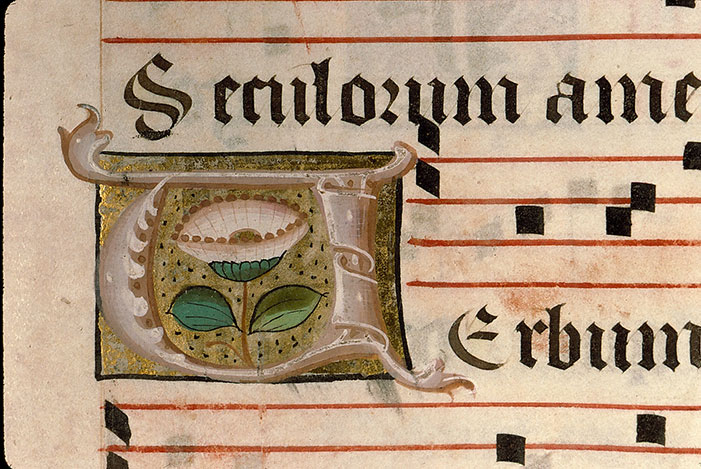 Seculorum ame
VErbum